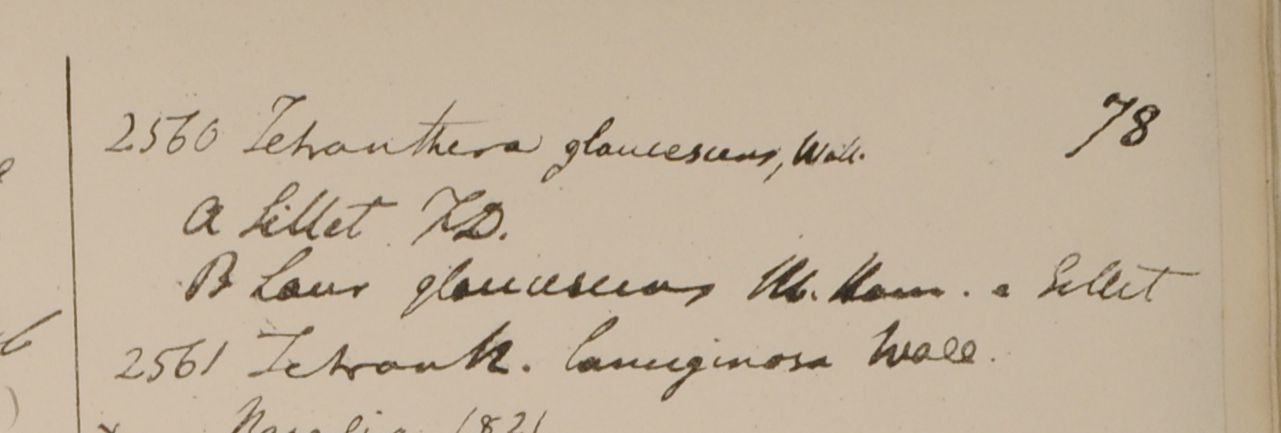 2560 Tetranthera glaucescens, Wall. 78
A Sillet F.D.
B Laur glaucescens Hb. Ham. e Sillet
2561 Tetranth. lanuginosa Wall.
Napalia 1821